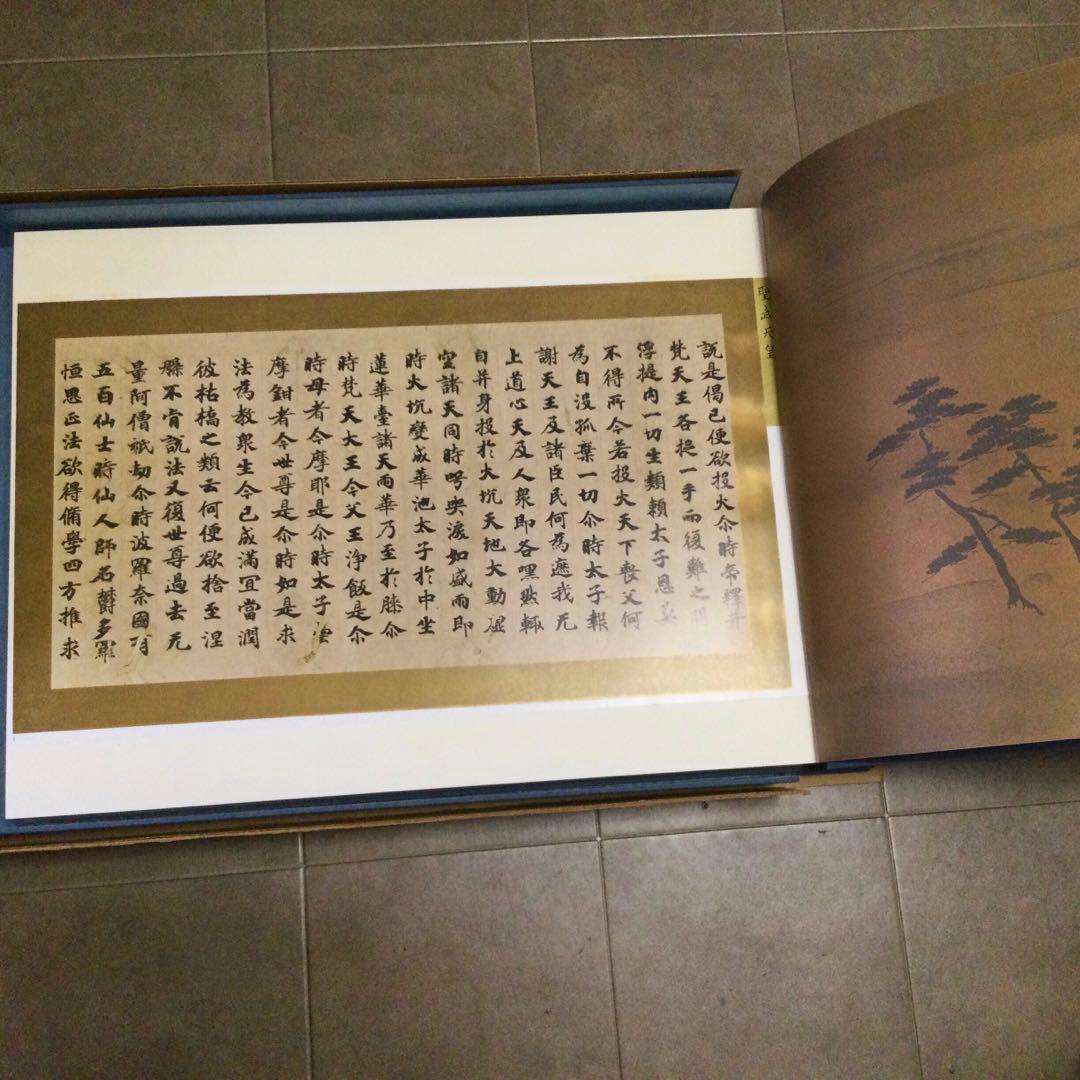 聖武天皇
説是偈已便欲投火尒時帝釋并
梵天王各捉一手而復難之閻
浮提内一切生類頼太子恩莫
不得所今若投火天下喪父何
為自没孤棄一切尒時太子報
謝天王及諸臣民何為遮我无
上道心天及人衆即各嘿然輙
自并身投於火坑天地大動虚
空諸天同時号哭涙如盛雨即
時火坑變成華池太子於中坐
蓮華臺諸天雨華乃至於膝尒
時梵天大王今父王浄飯是尒
時母者今摩耶是尒時太子曇
摩鉗者今世尊是尒時如是求
法為教衆生今已成滿宜當潤
彼枯槁之類云何便欲捨至涅
槃不肯説法又復世尊過去无
量阿僧祇劫尒時波羅奈國有
五百仙士時仙人師名欝多羅
恒思正法欲得脩學四方推求